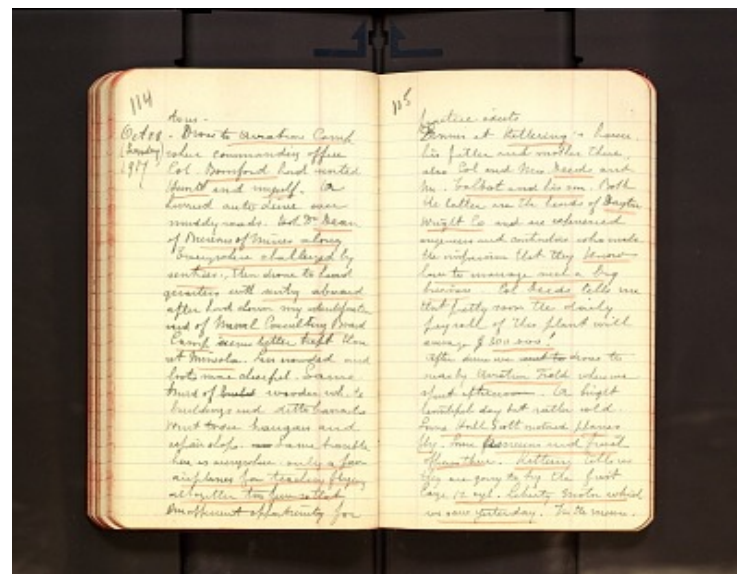 114
tions.
Oct 28 - Drove to Aviation Camp
(Sunday) where commanding officer
1917 Col. Bomford had invited
and myself. A
hurried auto drive over
muddy roads. Dr Dean
of Bureau of Mines along
Everywhere challenged by
sentries, then drove to head
quarters with sentry aboard
after had shown my identification
card of Naval Consulting Board
Camp seems better kept than
at Mineola. Less crowded and
looks more cheerful. Same
kind of wooden
buildings and ditto barracks
Went to see hangars and
repair shop. Same trouble
here as everywhere only a few
airplanes for teaching flying
altogether too few so that
insufficient opportunity for
115
practice exists
Dinner at Kettering's house
his father and mother there,
also Col and Mrs. Deeds and
Mr. Talbot and his son. Both
the latter are the heads of Dayton
Wright Co and are experienced
engineers and contractors who made
the impression that they know
how to manage such a big
business. Col Deeds tells me
that pretty soon the daily
payroll of this plant will
average $ 300 000!
After dinner we drove to
nearby Aviation Field where we
spent afternoon. A bright
beautiful day but rather cold.
Some Hall Scott motored planes
fly. Some and French
officers there. Kettering tells me
they are going to try the first
large 12 cyl. Liberty Motor which
we saw yesterday. In the